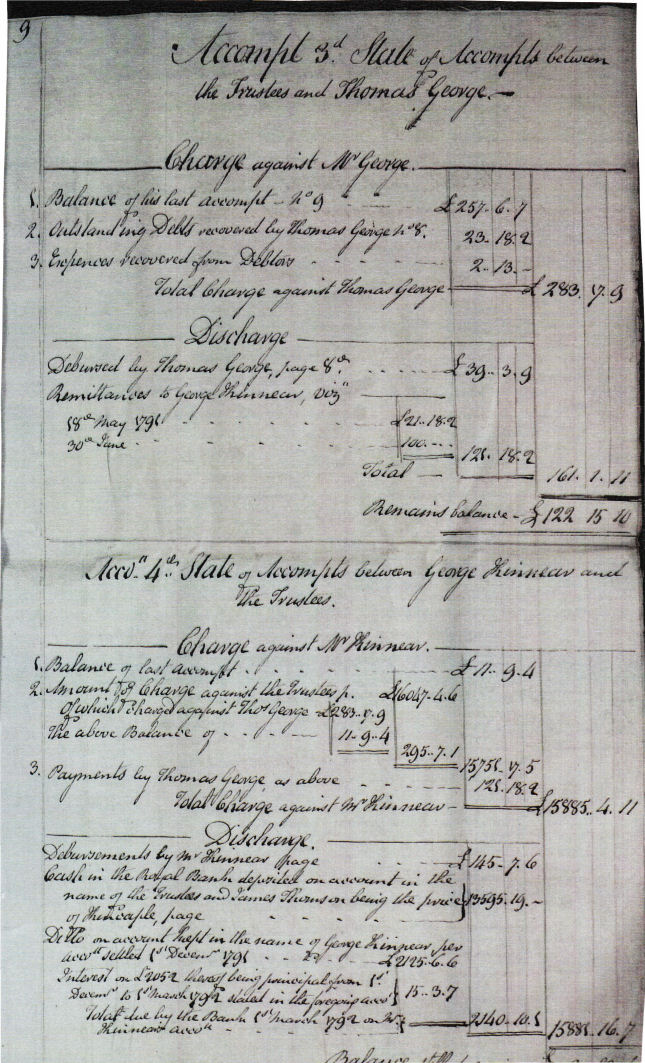 9
Accompt 3d State of Accompts between
the Trustees and Thomas George.—
Charge against Mr George.
1. Balance of his last accompt - No 9 £257-6-7
2. Outstanding Debts recovered by Thomas George No 8. 23-18-2
3. Expences recovered from Debtors 2-13-
Total Charge against Thomas George £283.17.9
Discharge
Debursed by Thomas George, page 8th. £39-3-9
Remittances to George Kinnear, vizt
18th May 1791 £21-18-2
30th June 100-- 121.18.2
Total — 161.1.11
Remains balance - £122 15 10
Acco.t 4th. State of Accompts between George Kinnear and
the Trustees.
Charge against Mr Kinnear.
1. Balance of last accompt £11-9-4
2. Amount of Charge against the Trustees p. £16047-4-6
Of which charged against Thos George - £283-17-9
The above Balance of 11-9-4
295-7-1
15751-17-5
3. Payments by Thomas George as above 121-18-2
Total Charge against Mr Kinnear - £15885.4.11
Discharge.
Debursements by Mr Kinnear page £145-7-6
Cash in the Royal Bank deposited on account in the
name of the Trustees and James Thomson being the price 13595.19.-
of Kincaple, page
Ditto on account kept in the name of George Kinnear per
accott settled 1st Decemr 1791 £2125-6-6
Interest on £2052 thereof being principal from 1st.
Decemr to 1st March 1792 stated in the foregoing accot 15-3.7
Total due by the Bank 1st March 1792 on Mr
Kinnears accot 2140.10.1 15881.16.7
Balance still